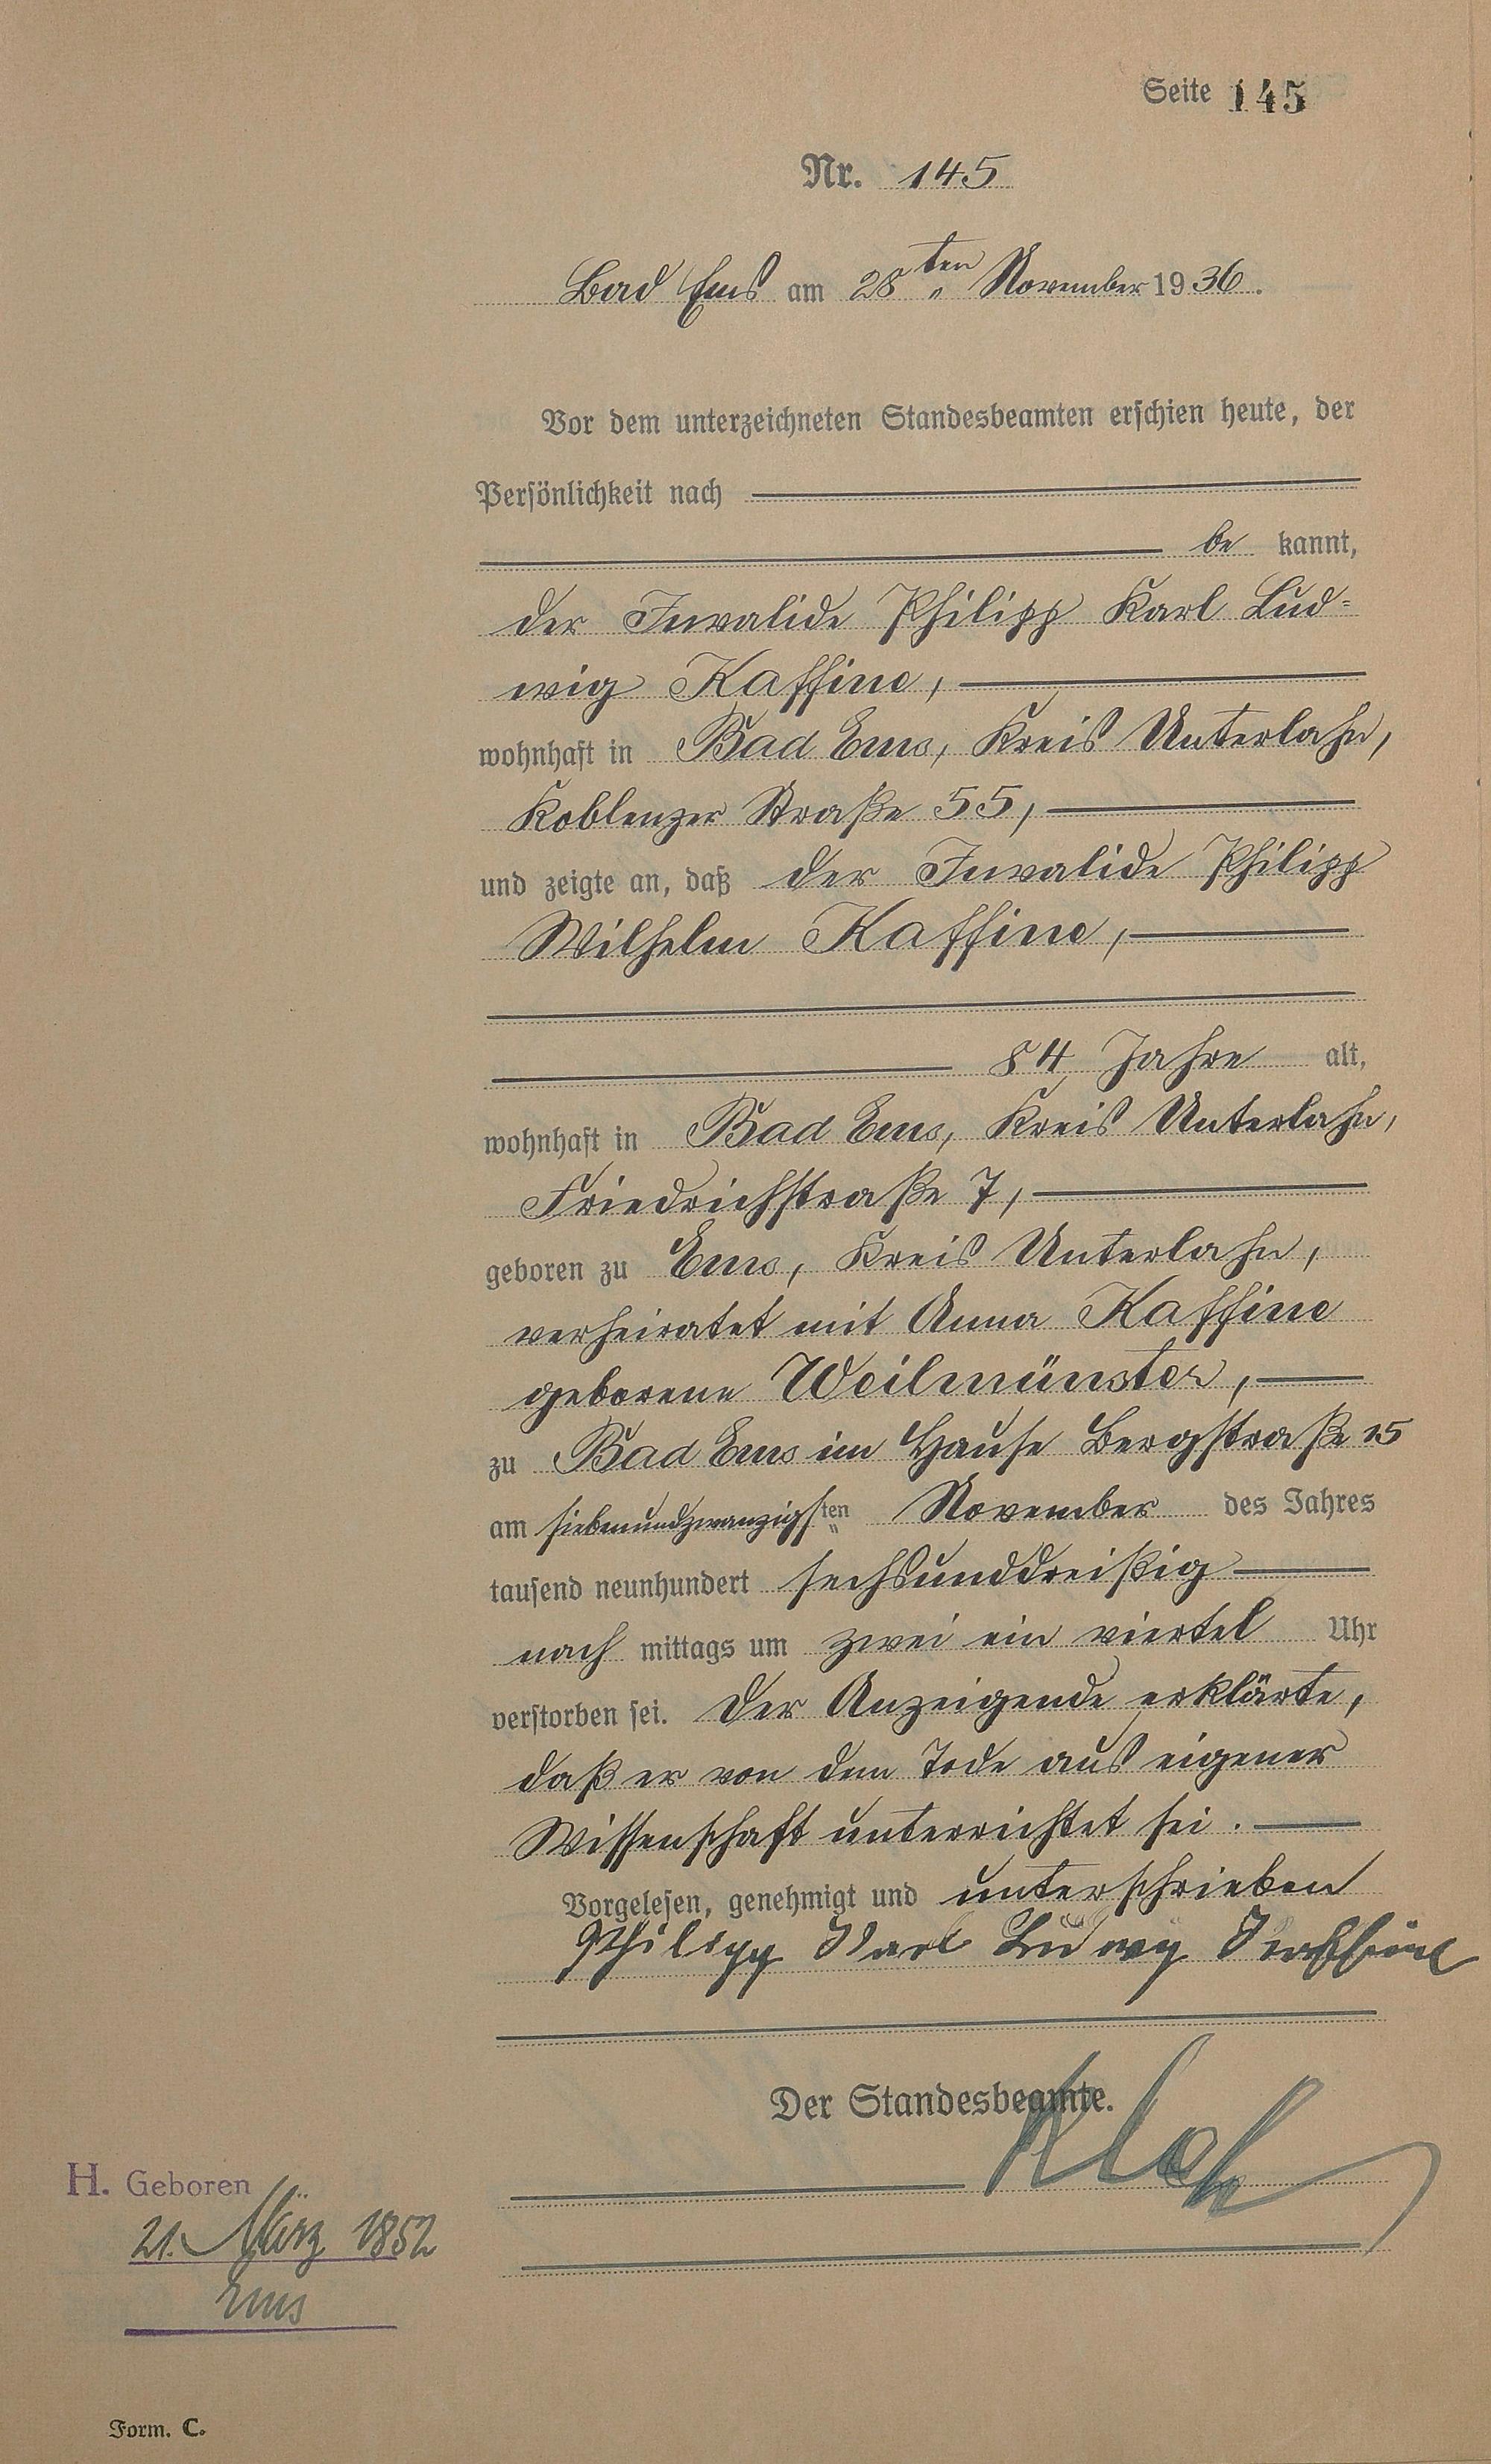 Seite 145
Nr. 145
Bad Ems am 28ten November 1936.
Vor dem unterzeichneten Standesbeamten erschien heute, der
Persönlichkeit nach
be kannt,
der Invalide Philipp Karl Lud=
wig Kaffine,
wohnhaft in Bad Ems, Kreis Unterlahn,
Koblenzer Straße 55,
und zeigte an, daß der Invalide Philipp
Wilhelm Kaffine,
84 Jahre alt,
wohnhaft in Bad Ems, Kreis Unterlahn,
Friedrichstraße 7,
geboren zu Ems, Kreis Unterlahn,
verheiratet mit Anna Kaffine
geborene Weilmünster,
zu Bad Ems im Hause Bergstraße 15
am siebenundzwanzigsten November des Jahres
tausend neunhundert sechsunddreißig
nach mittags um zwei ein viertel Uhr
verstorben sei. Der Anzeigende erklärte,
daß er von dem Tode aus eigener
Wissenschaft unterrichtet sei.
Vorgelesen, genehmigt und unterschrieben
Philipp Karl Ludwig Kaffine
Der Standesbeamte.
H. Geboren
21. März 1852
Ems
Form. C.